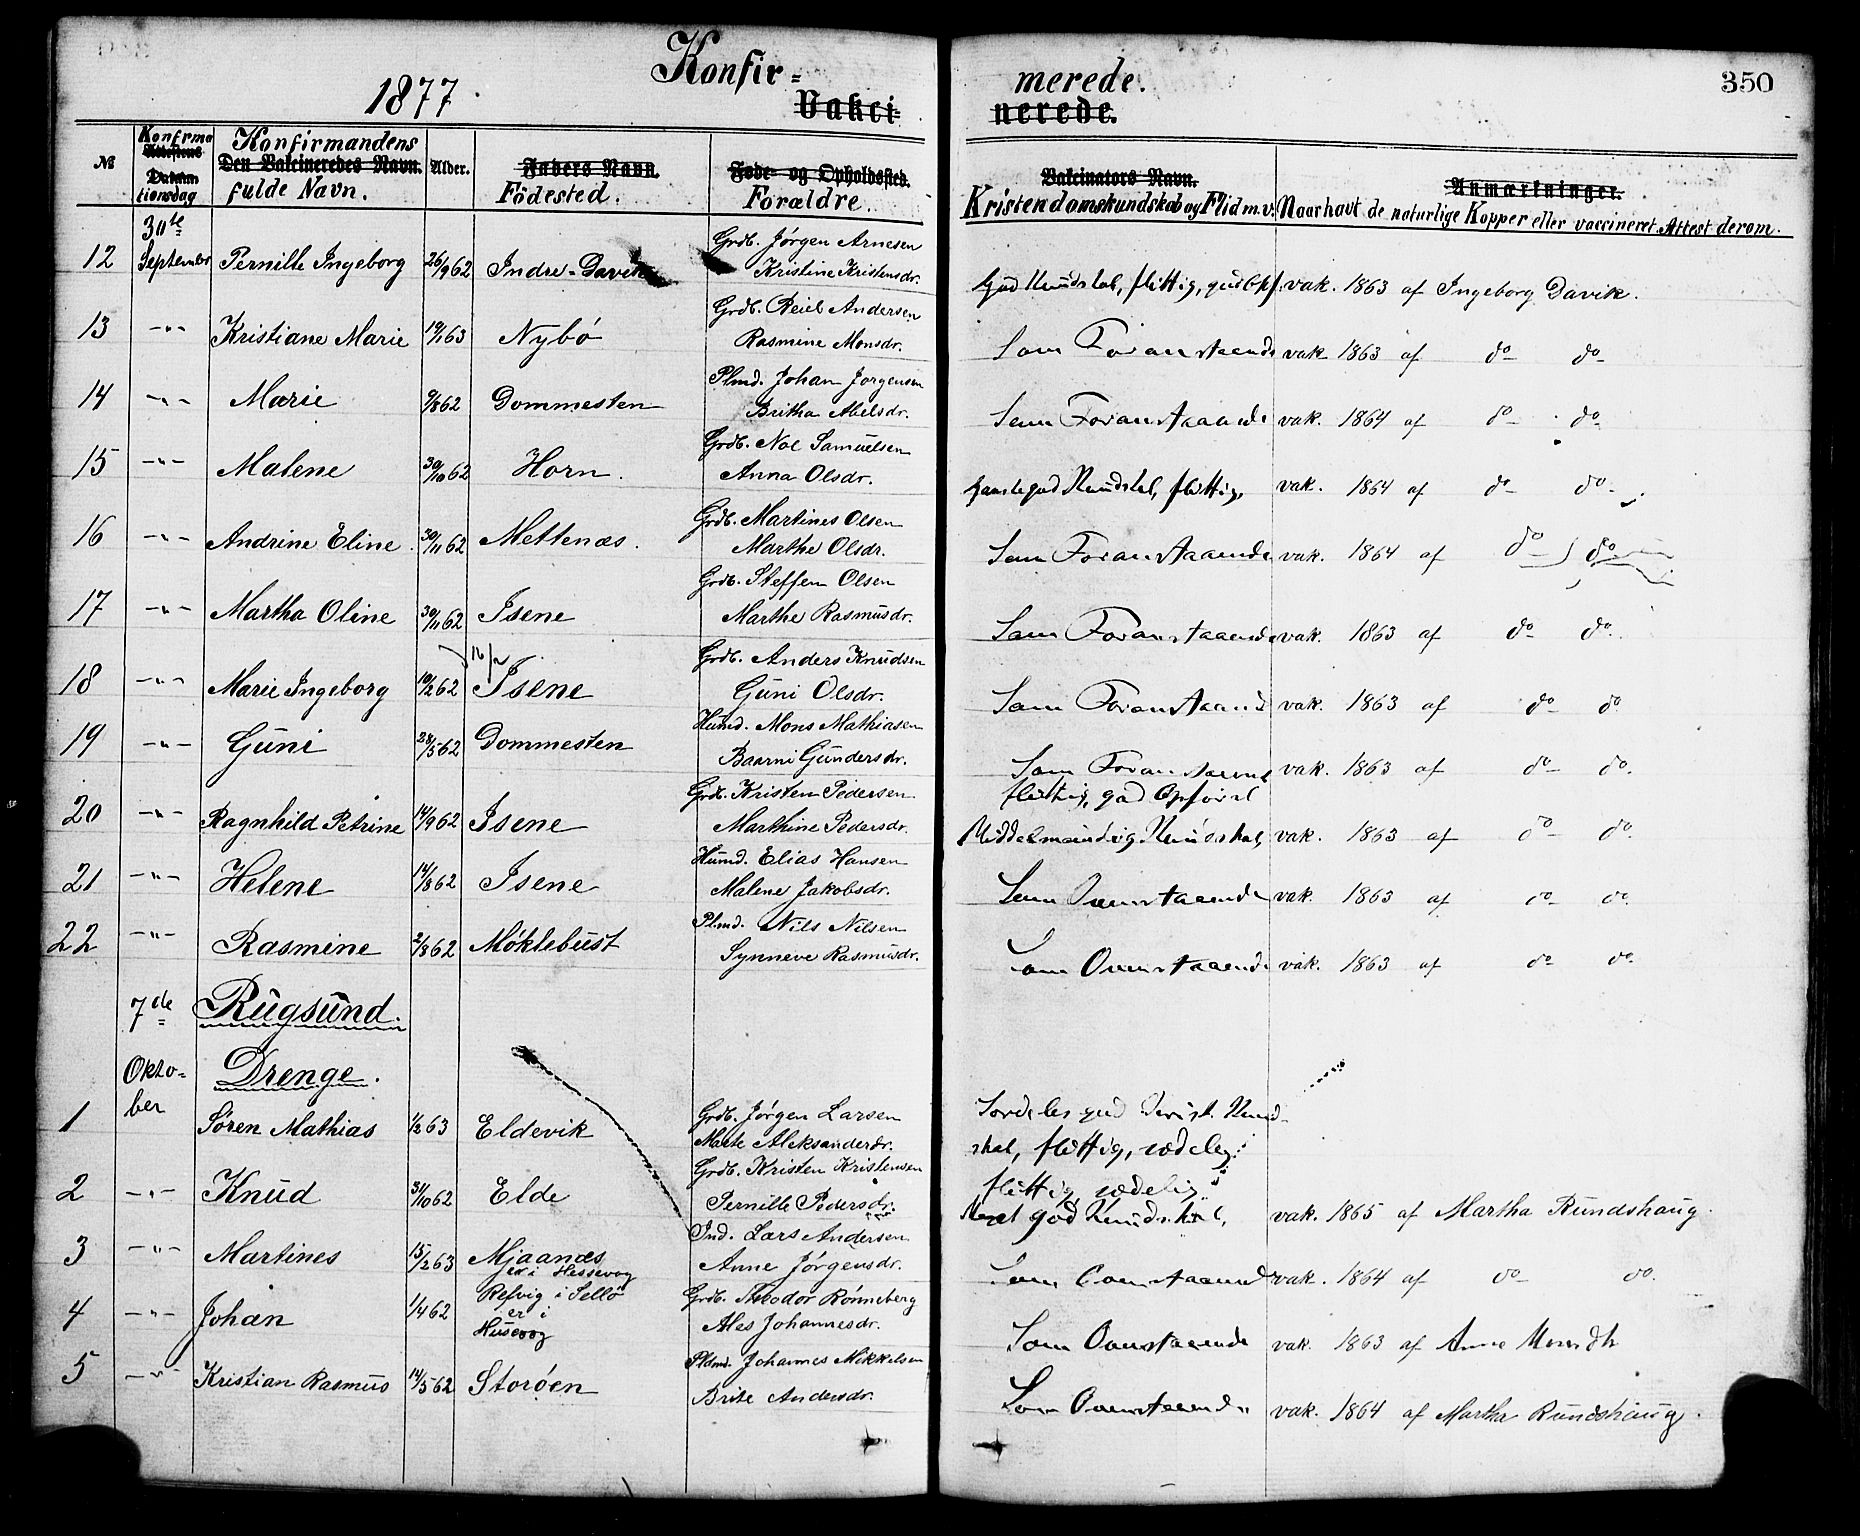 1877.
Konfir=
merede.
350
Vakci
nerede.
№
Konfirma
Attestens
Datum
tionsdag
Konfirmandens
Den Vakcineredes Navn.
fulde Navn.
Alder.
Faders Navn.
Födested.
Føde- og Opholdssted.
Forældre.
Vakcinators Navn.
Kristendomskundskab og Flid m.v.
Anmærkninger.
Naar havt de naturlige Kopper eller vaccineret. Attest derom.
30te
12 September Pernille Ingeborg 26/9 62 Indre-Davik Grdb. Jørgen Arnesen
Kristine Kristensdr. God Kundskab, flittig, vak. 1863 af Ingeborg Davik.
13 -"- Kristiane Marie 63 Nybö Grdb. Andersen
Rasmine Monsdr. Som Foranstaaende vak. 1863 af do do
14 -"- Marie 9/8 62 Dommesten Plmd. Johan Jörgensen
Britha Abelsdr. Som Foranstaaende vak. 1864 af do do
15 -"- Malene 30/10 62 Horn. Grdb. Noe Samuelsen
Anna Olsdr. Ganske god Kundskab, flittig, vak. 1864 af do do
16 -"- Andrine Eline. 30/11 62 Mettenæs. Grdb. Martines Olsen
Marthe Olsdr. Som Foranstaaende vak. 1864 af do do
17 -"- Martha Oline 30/11 62 Isene Grdb. Steffen Olsen
Marthe Rasmusdr. Som Foranstaaende vak. 1863 af do do
16/2
18 -"- Marie Ingeborg 10/2 62 Isene Grdb. Anders Knudsen
Guni Olsdr. Som Foranstaaend vak. 1863 af do do
19 -"- Guni 28/5 62 Dommesten Husmd. Mons Mathiasen
Baarni Gundersdr. Som Foranstaaend vak. 1863 af do do
20 -"- Ragnhild Petrine 14/9 62 Isene Grdb. Kristen Pedersen
Marthine Pedersdr. flittig, god Opførsel
Middelmaadig Kundskab, vak. 1863 af do do
21 -"- Helene 14/8 62 Isene Husmd. Elias Hansen
Malene Jakobsdr. Som Ovenstaaende vak. 1863 af do do
22 -"- Rasmine 2/8 62 Möklebust Plmd. Nils Nilsen
Synneve Rasmusdr. Som Ovenstaaende vak. 1863 af do do
7de Rugsund.
Okto- Drenge.
ber
1 Sören Mathias 1/2 63 Eldevik Grdb. Jørgen Larsen
Marte Aleksanderdr. Særdeles god Krist. Kund-
skab, flittig, sædelig
2 -"- Knud 31/10 62 Elde Grdb. Kristen Kristensen
Pernille Pedersdr. flittig, sædelig
Meget god Kundskab, vak. 1865 af Martha Rundshaug.
3 -"- Martines 15/2 63 Mjaanæs Ind. Lars Andersen
er i Hessevog
Anne Jørgensdr. Som Ovenstaaende vak. 1864 af do do
4 -"- Johan 1/4 62 Refvig i Sellö Grdb. Theodor Rönneberg
er i
Husevog
Ales Johannesdr. Som Ovenstaaende vak. 1863 af Anne
5 -"- Kristian Rasmus 14/5 62 Storöen Pldmd. Johannes Mikkelsen
Brite Andersdr. Som Ovenstaaende vak. 1864 af Martha Rundshaug.